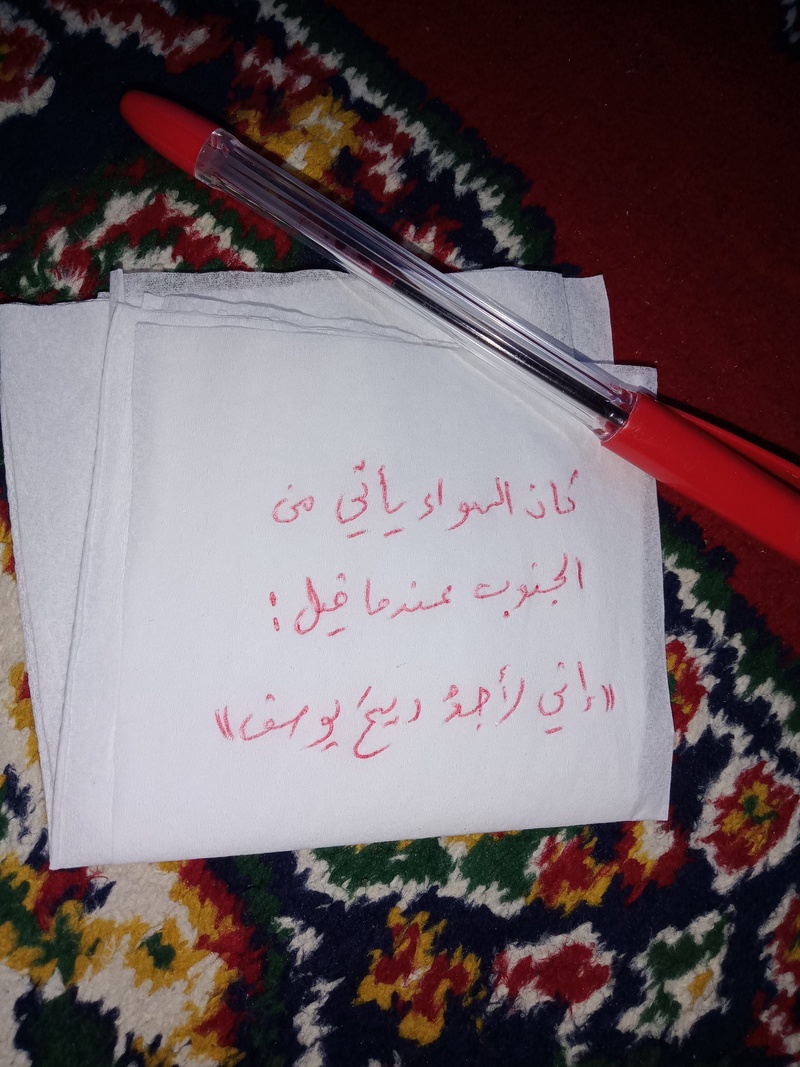 كان الهواء يأتي من
الجنوب عندما قيل :
"إني لأجدُ ريحَ يوسف"